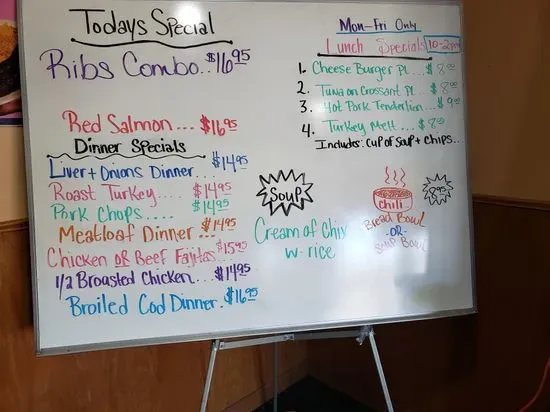 Todays Special
Ribs Combo..$16.95
Red Salmon....$16.95
Dinner Specials
Liver + Onions Dinner..$14.95
Roast Turkey....$14.95
Pork Chops.....$14.95
Meatloaf Dinner...$14.95
Chicken or Beef Fajitas $15.95
1/2 Broasted Chicken..$14.95
Broiled Cod Dinner.$16.95
Mon-Fri Only
Lunch Specials 10-2pm
1. Cheese Burger Pl...$8.00
2. Tuna on Crossant Pl...$8.00
3. Hot Pork Tenderlion...$9.00
4. Turkey Melt...$8.00
Includes: Cup of Soup + Chips...
Soup
Cream of
w. rice
Chili
8.95
Bread Bowl
-OR-
Soup Bowl